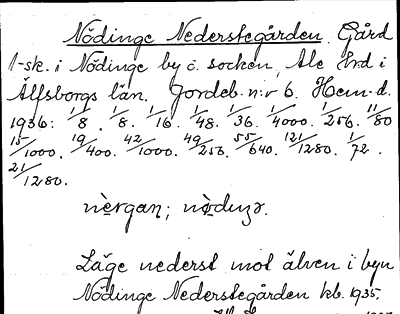 Nödinge Nederstegården. Gård
1-sk. i Nödinge by o. socken, Ale hrd i
Älfsborgs län. Jordeb. n:r 6. Hem.d.
1936: 1/8. 1/8. 1/16. 1/48. 1/36. 1/4000. 1/256. 11/80
15/1000. 19/400. 42/1000. 49/256. 55/640. 121/1280. 1/72.
21/1280.
Läge nederst mot älven i byn
Nödinge Nederstegården kb. 1935.